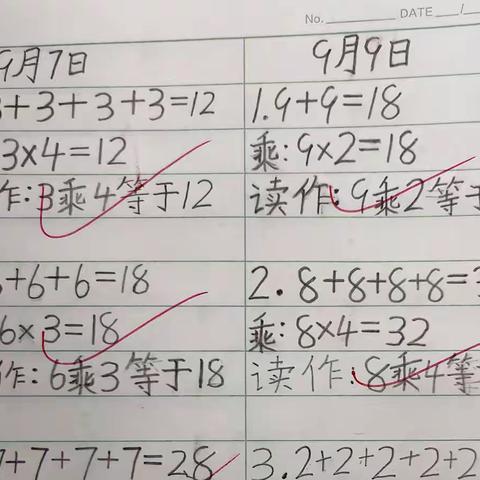 No. DATE /
9月7日
3+3+3+3=12
3×4=12
作:3乘4等于12
6+6+6=18
6×3=18
作:6乘3等于18
7+7+7+7=28
9月9日
1.9+9=18
乘:9×2=18
读作:9乘2等于
2.8+8+8+8=3
乘:8×4=32
读作:8乘4等
3.2+2+2+2+2